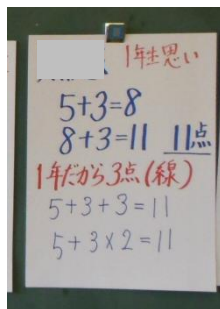 1年生思い
5+3=8
8+3=11 11点
1年だから3点(線)
5+3+3=11
5+3×2=11